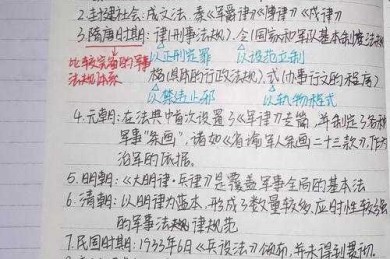 2.封建社会:成文法,秦《军爵律》《傅律》《戍律》
3.隋唐时期:律(刑事法规).令(国家和军队基本制度法规)
以正刑定罪
以设范立制
比较完备的军事法规体系
格(具体的行政法规).式(办事行文的程序)
以禁违止邪
以轨物程式
4.元朝:在法典中首次设置了《军律》专篇,并制定了各种
军事"条画",诸如《省谕军人条画二十三款》,作为
治军的依据.
5.明朝:《大明律·兵律》是覆盖军事全局的基本法
6.清朝:以明律为蓝本,形成了数量较多,应时性较强
的军事法规律规范
7.民国时期:1933年6月《兵役法》颁布,并未得到贯彻.